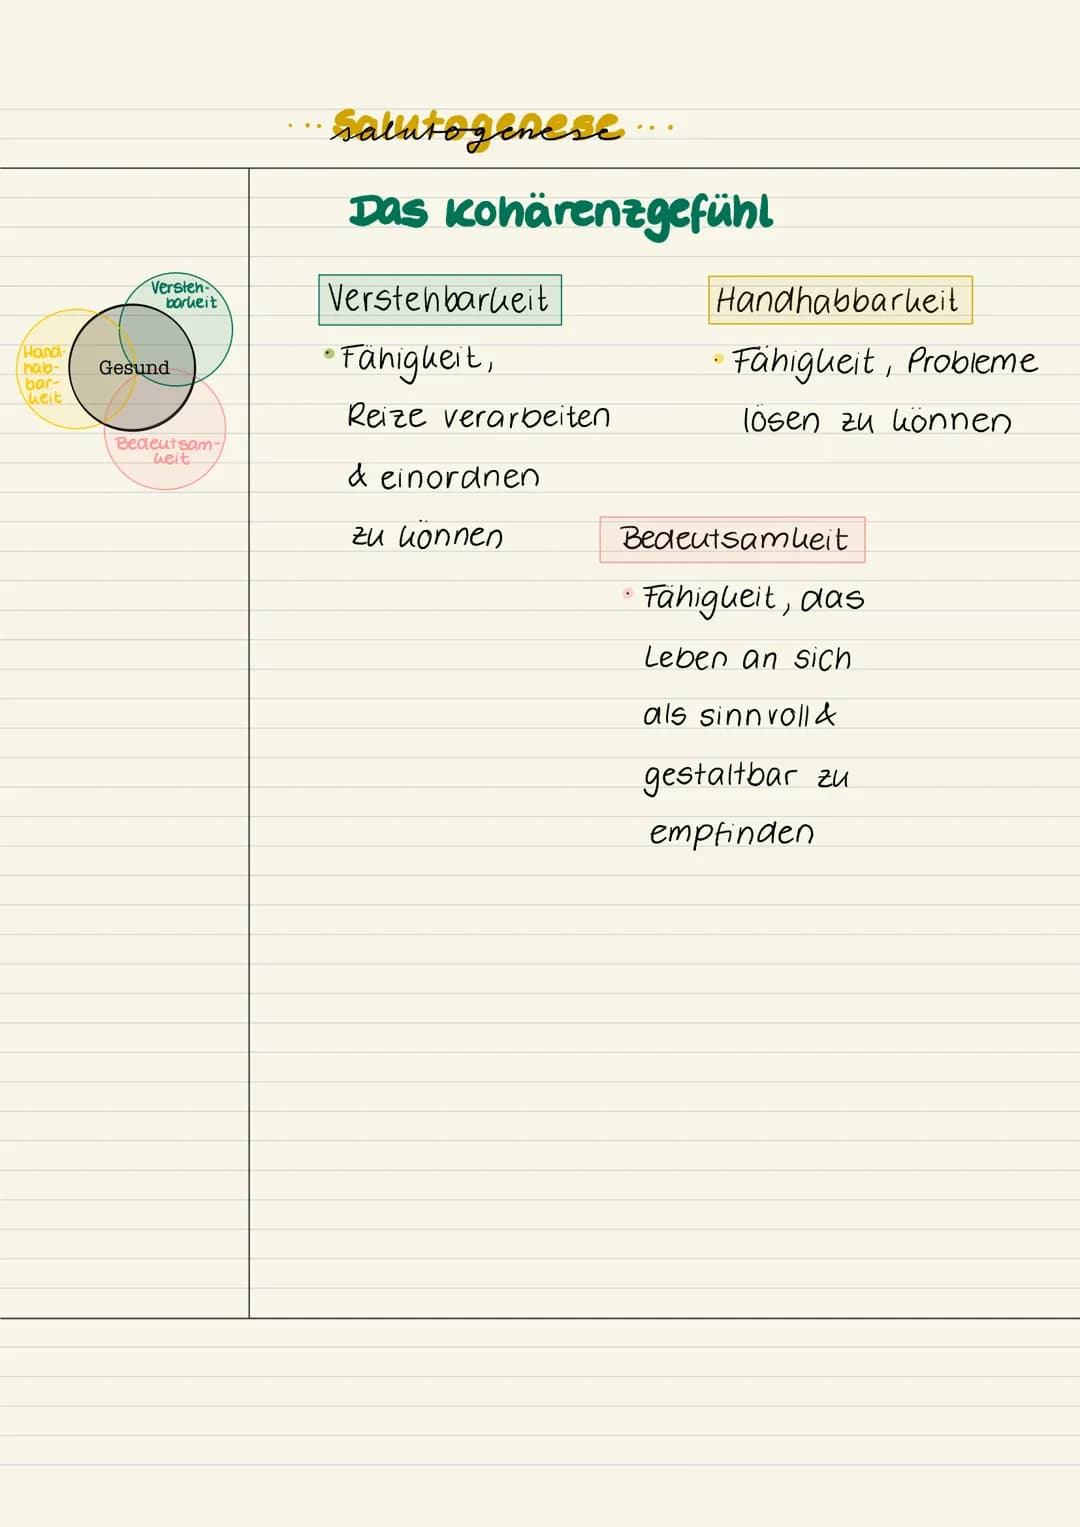 ... Salutogenese ...
salutogenese
Das Kohärenzgefühl
Versteh-
barkeit
Hand-
hab-
bar-
keit
Gesund
Bedeutsam-
keit
Verstehbarkeit
• Fähigkeit,
Reize verarbeiten
& einordnen
zu können
Handhabbarkeit
• Fähigkeit, Probleme
lösen zu können
Bedeutsamkeit
• Fähigkeit, das
Leben an sich
als sinnvoll &
gestaltbar zu
empfinden